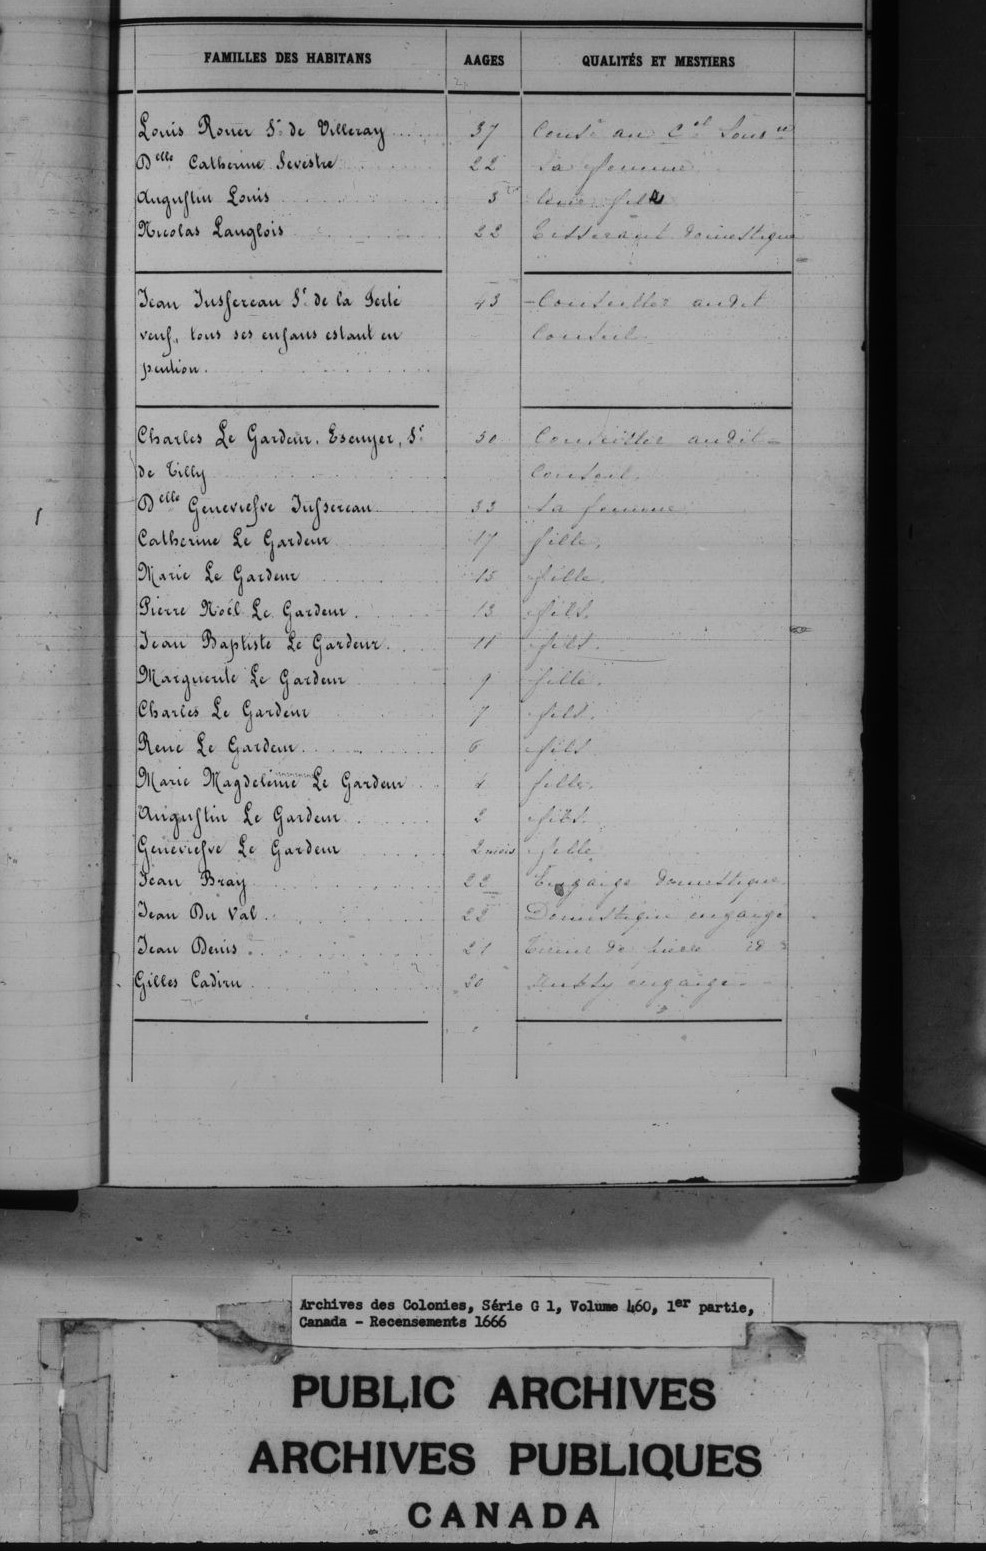 FAMILLES DES HABITANS AAGES QUALITÉS ET MESTIERS
Louis Rouer Sr de Villeray 37 Conser au Cel Souvn
Delle Catherine Sevestre 22 Sa femme
Augustin Louis 3 leur fils
Nicolas Langlois 22 Tisserant domestique
Jean Jussereau Sr de la Ferté 43 Conseiller audit
veuf, tous ses enfans estant en Conseil
pention.
Charles Le Gardeur, Escuyer, Sr 50 Conseiller audit
de Tilly Conseil.
Delle Geneviesve Jussereau 33 Sa femme
Catherine Le Gardeur 17 fille.
Marie Le Gardeur 15 fille.
Pierre Noël Le Gardeur. 13 fils.
Jean Baptiste Le Gardeur. 11 fils.
Marguerite Le Gardeur 9 fille.
Charles Le Gardeur 7 fils.
René Le Gardeur 6 fils
Marie Magdeleine Le Gardeur 4 fille.
Augustin Le Gardeur 2 fils.
Geneviesve Le Gardeur 2 mois fille
Jean Bray 22 Engaigé domestique
Jean Du Val 22 Domestique engaigé
Jean Denis. 21 de id
Gilles Cadiru 20 Aussy engaigé
Archives des Colonies, Série G 1, Volume 460, 1er partie,
Canada - Recensements 1666
PUBLIC ARCHIVES
ARCHIVES PUBLIQUES
CANADA